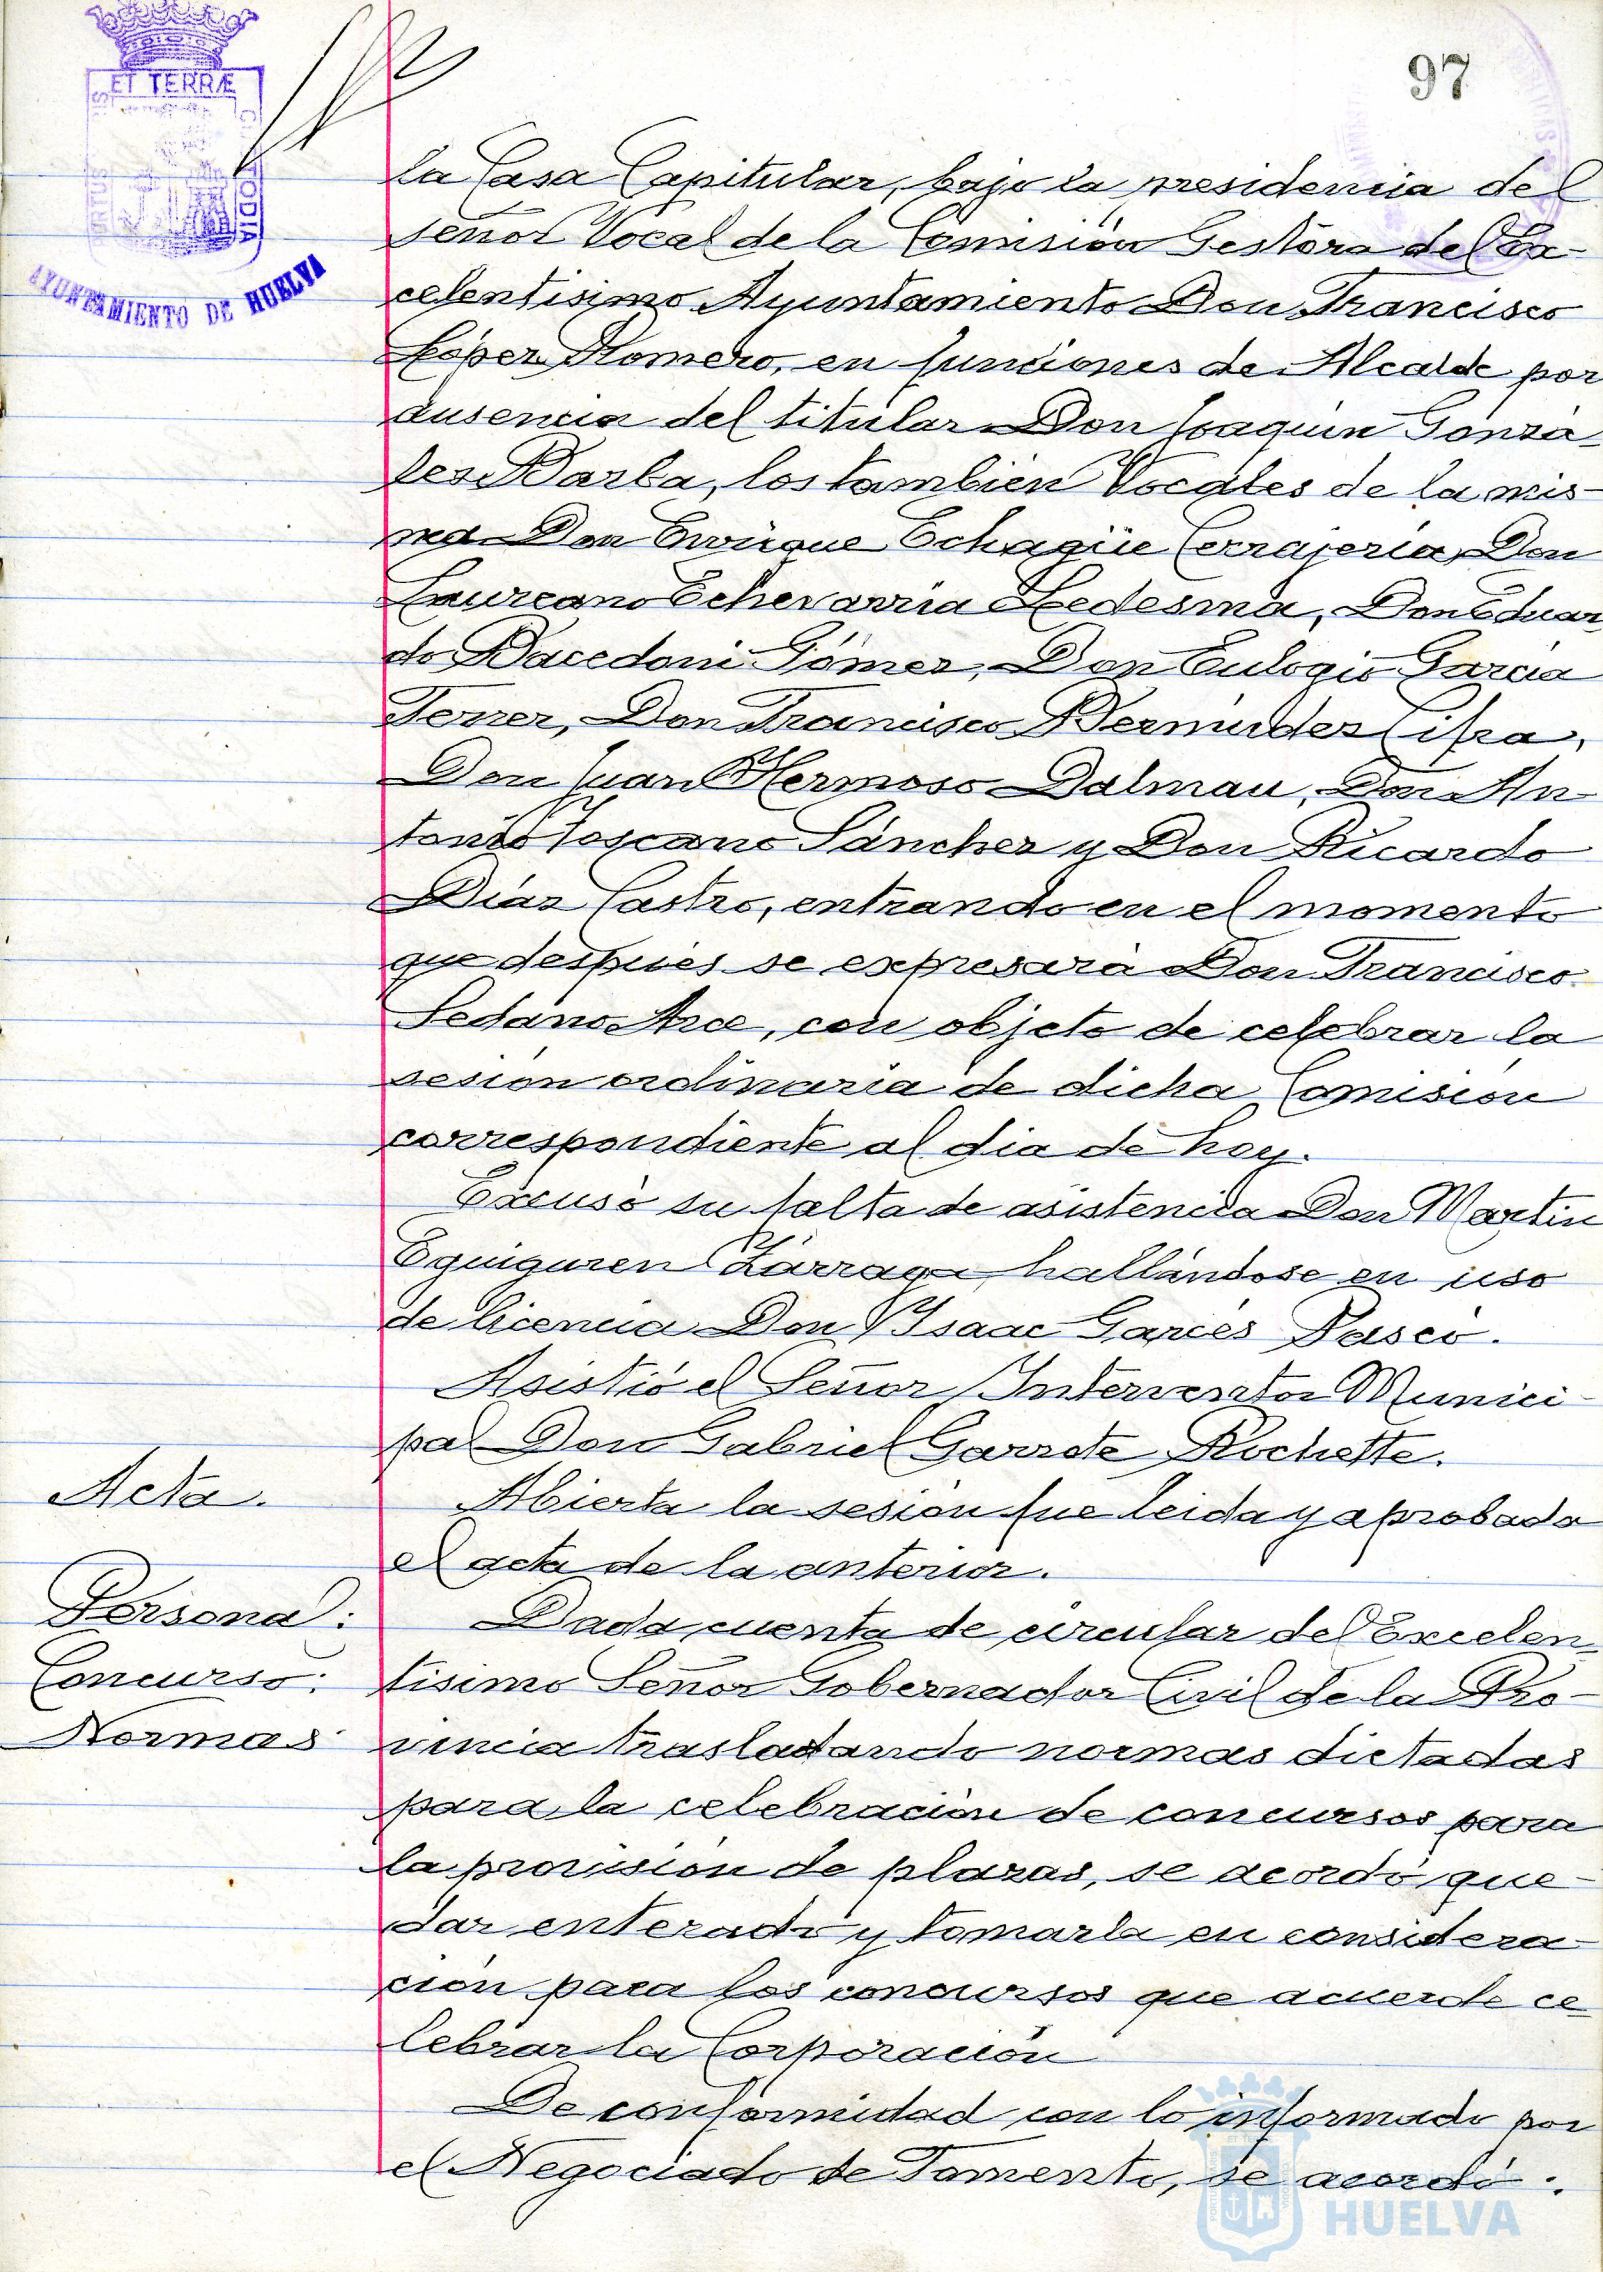 97
ET TERRÆ
PORTUS
CUSTODIA
AYUNTAMIENTO DE HUELVA
la Casa Capitular, bajo la presidencia del
señor Vocal de la Comisión Gestora del Ex-
celentisimo Ayuntamiento Don Francisco
López Romero, en funciones de Alcalde por
ausencia del titular Don Joaquin Gonzá-
lez Barba, los también Vocales de la mis-
ma Don Enrique Echagüe Cerrajeria, Don
Laureano Echevarria Ledesma, Don Eduar
do Bacedoni Gómez, Don Eulogio Garcia
Ferrer, Don Francisco Bermudez Cifra,
Don Juan Hermoso Dalmau, Don An-
tonio Toscano Sánchez y Don Ricardo
Diáz Castro, entrando en el momento
que después se expresará Don Francisco
Sedano Arce, con objeto de celebrar la
sesión ordinaria de dicha Comisión
correspondiente al dia de hoy.
Excusó su falta de asistencia Don Martin
Eguiguren Zárraga, hallándose en uso
de licencia Don Isaac Garcés Pasco.
Asistió el Señor Interventor Munici-
pal Don Gabriel Garrote Rochette.
Acta.
Abierta la sesión fue leida y aprobada
el acta de la anterior.
Personal:
Dada cuenta de circular del Excelen-
Concurso:
tisimo Señor Gobernador Civil de la Pro-
Normas
vincia trasladando normas dictadas
para la celebración de concursos para
la provisión de plazas, se acordó que-
dar enterado y tomarla en considera-
ción para los concursos que acuerde ce-
lebrar la Corporación
De conformidad con lo informado por
el Negociado de Fomento, se acordó:
HUELVA